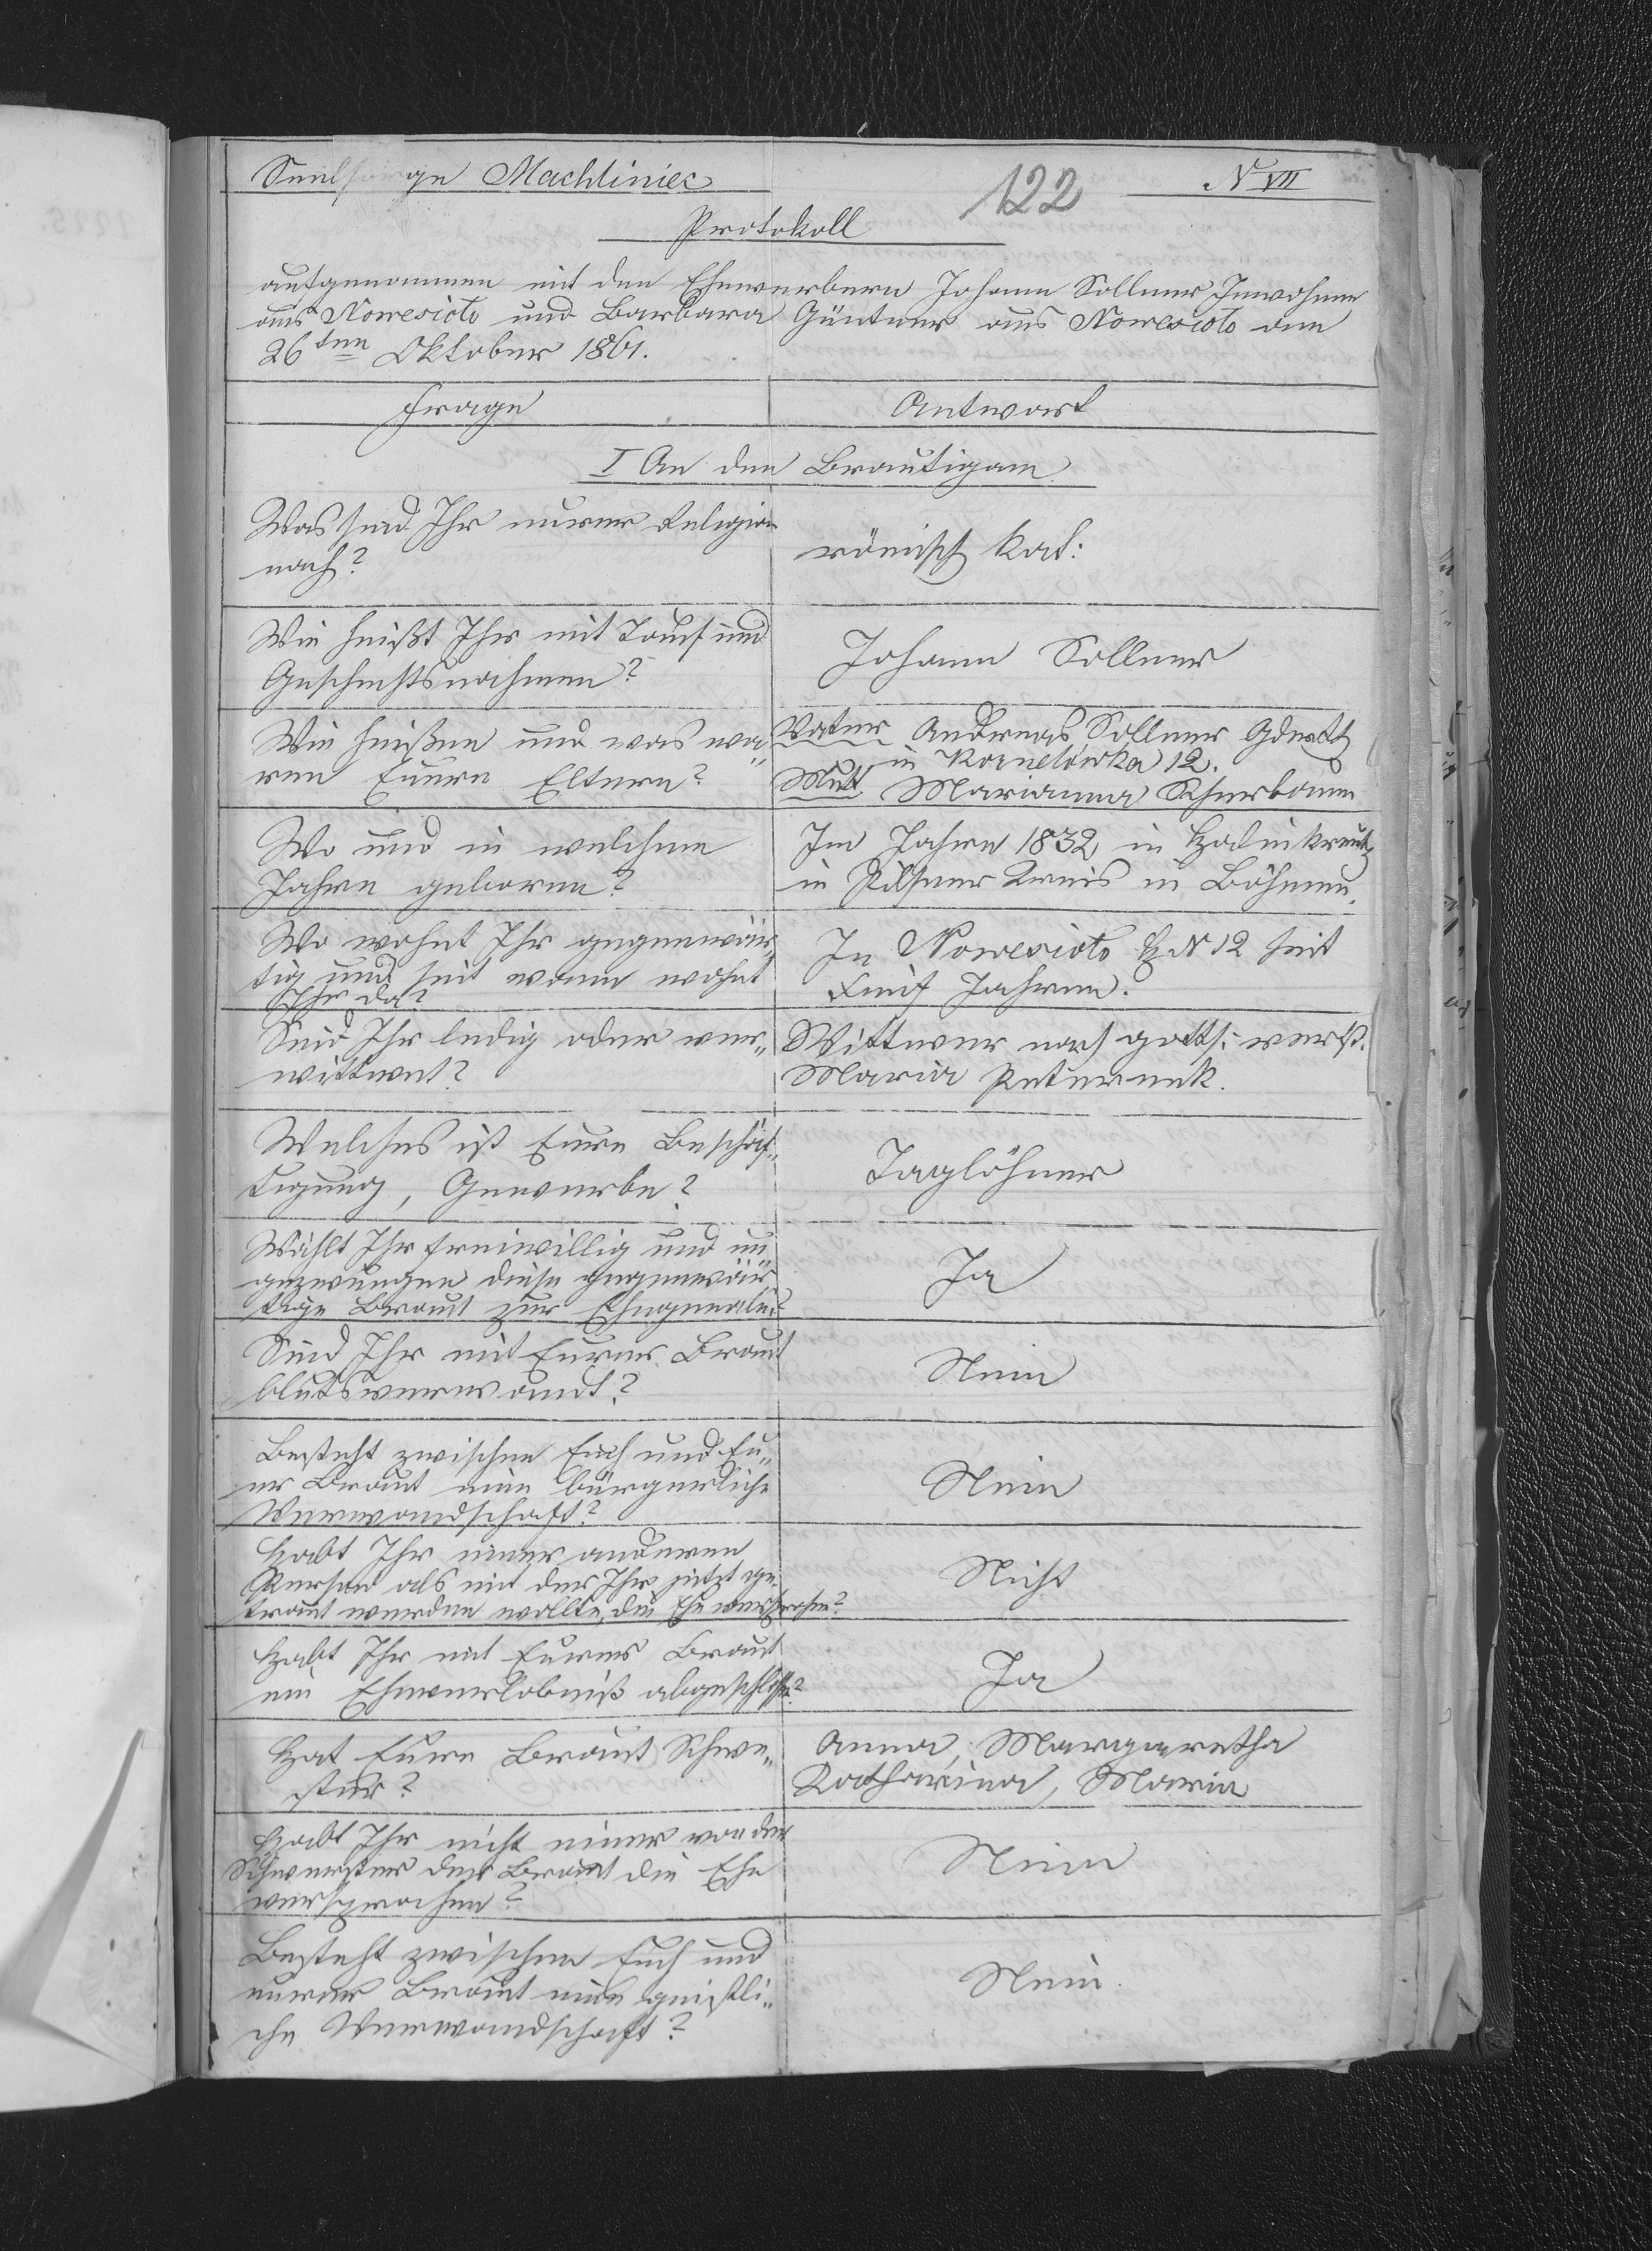 Seelsorge Machliniec
122
N VII
Protokoll
aufgenommen mit den Ehewerbern Johann Sollner Inwohner
aus Nowesioło und Barbara Güntner aus Nowesioło am
26ten Oktober 1861.
Frage
Antwort
I An den Brautigam
Was seid Ihr eurer Religion
nach?
römisch kat:
Wie heißt Ihr mit Tauf und
Geschechtsnahmen?
Johann Sollner
Wie heißen und was wa„
ren Euere Eltern?
Vater Andreas Sollner
in Kornelówka 12.
Mutt Marianna
Wo und in welchem
Jahre geboren?
Im Jahre 1832 in
in Pilsner Kreis in Böhmen.
Wo wohnt Ihr gegenwär„
tig und seit wann wohnt
Ihr da?
In Nowesioło H N 12 seit
Fünf Jahren.
Seid Ihr ledig oder ver„
wittwet?
Wittwer nach verst.
Maria Peternek.
Welches ist Eure Beschäf„
tigung, Gewerbe?
Taglöhner
Wählt Ihr freiwillig und un„
gezwungen diese gegenwär„
tige Braut zur Ehegemalin?
Ja
Seid Ihr mit Eurer Braut
blutsverwandt?
Nein
Besteht zwischen Euch und Eu„
er Braut eine bürgerliche
Verwandschaft?
Nein
Habt Ihr einer anderen
Person als mit der Ihr jetzt ge„
traut werden wollte, die Ehe versprochen?
Nicht
Habt Ihr mit Eurer Braut
ein Eheverlobniß abgeschlossen?
Ja
Hat Eure Braut Schwe„
ster?
Anna, Margaretha
Katharina, Maria
Habt Ihr nicht einer von den
Schwester der Braut die Ehe
versprochen?
Nein
Besteht zwischen Euch und
eurer Braut eine geistli„
che Verwandschaft?
Nein.